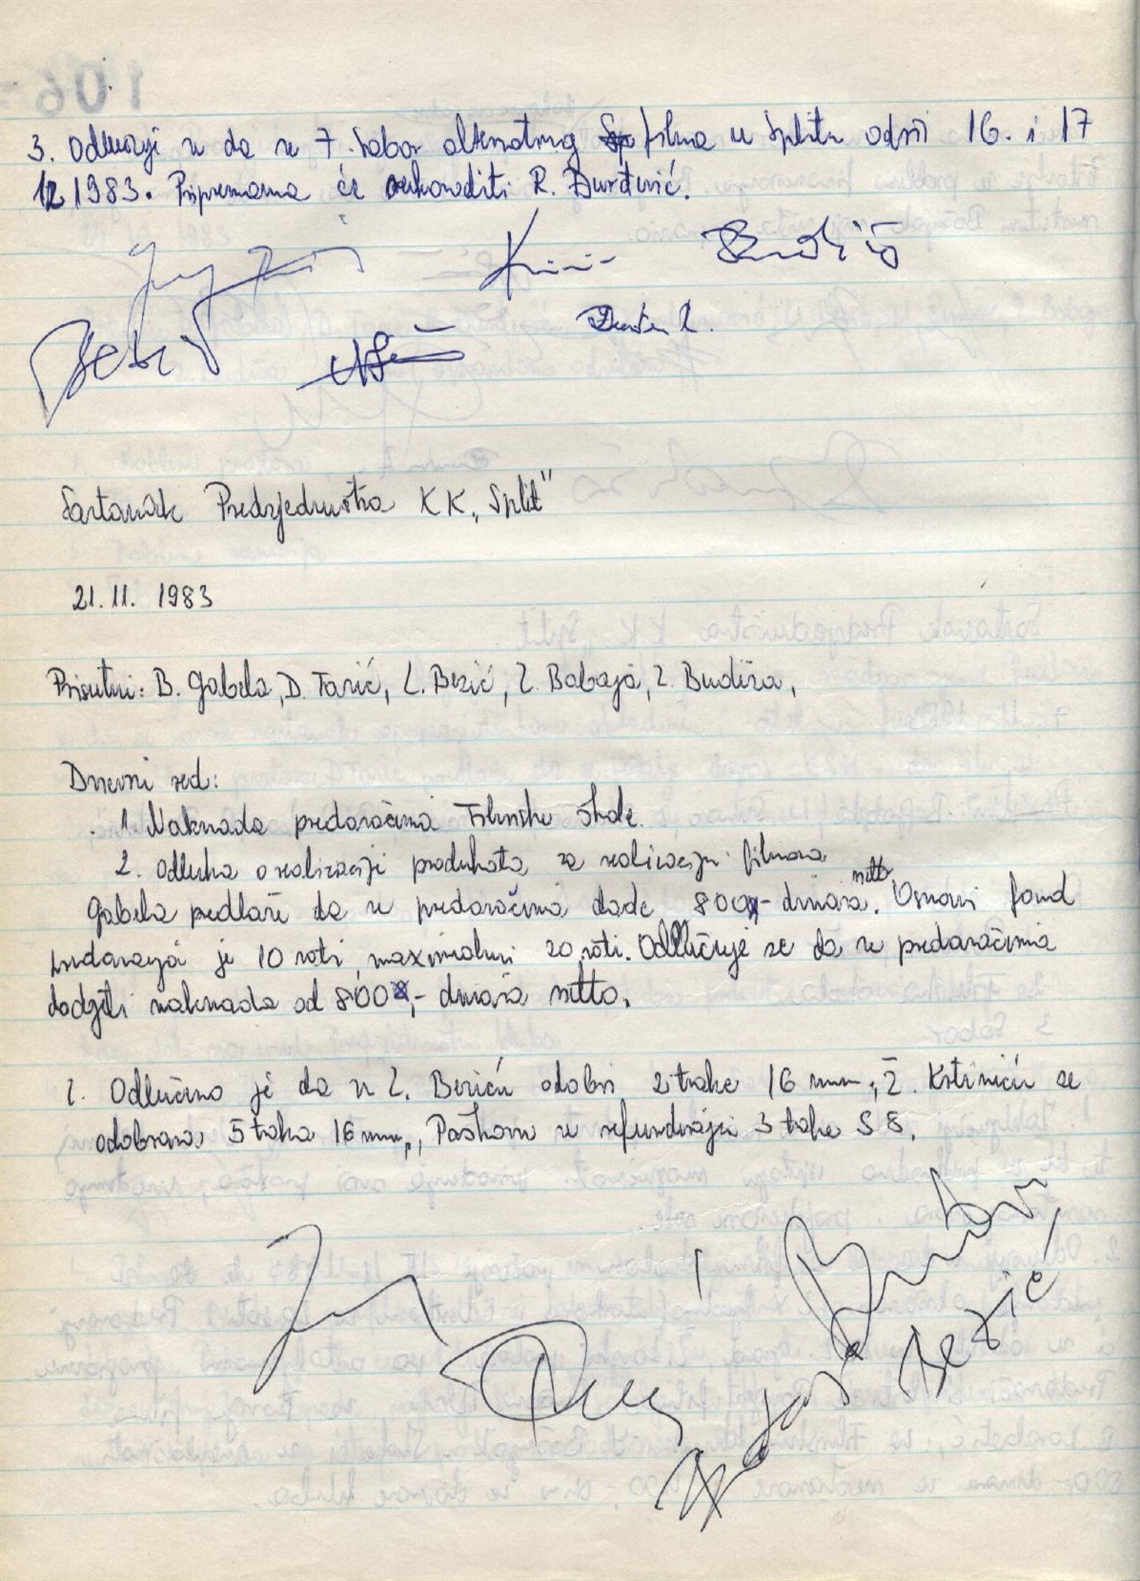 3. Odlučuje se da se 7. Sabor alternativnog filma u Splitu održi 16. i 17
12.1983. Pripremama će rukovoditi R. Đurđević.
Sastanak Predsjedništva KK „Split"
21.11. 1983
Prisutni: B. Gabela, D. Tasić, L. Bezić, Z. Babaja, Z. Budiša,
Dnevni red:
1 Naknada predavačima Filmske škole.
2. Odluka o realizaciji produkata za realizaciju filmova
Gabela predlaže da se predavačima dade 800,- dinara netto. Osnovni fond
predavanja je 10 sati, maximalni 20 sati. Odlučuje se da se predavačima
dodjeli naknada od 800,- dinara netto.
2. Odlučeno je da se L. Beziću odobri 2 trake 16 mm, Ž. Kstriniću se
odobrava 5 traka 16 mm, Paškom se refundiraju 3 trake S 8.
Bezić